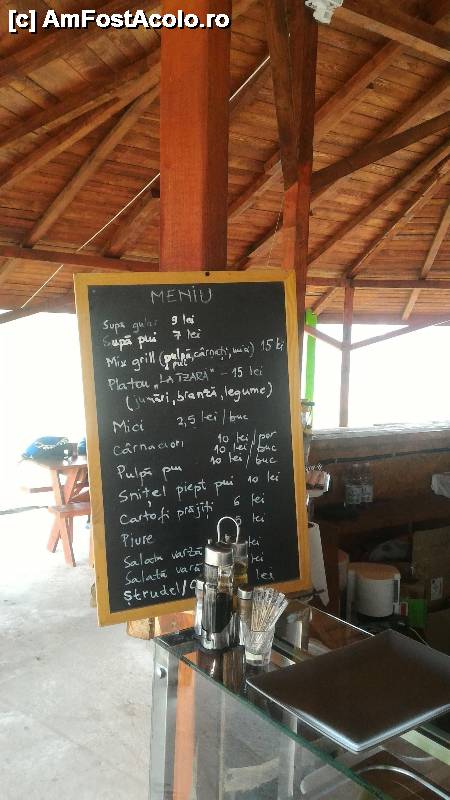 [c] AmFostAcolo.ro
MENIU
Supă gulaș 9 lei
Supă pui 7 lei
Mix grill (pulpă, cârnați, mici) 15 lei
pui
Platou „LA ȚARĂ" - 15 lei
(jumări, branză, legume)
Mici 2,5 lei / buc
Cârnăciori 10 lei / por
10 lei / buc
Pulpă pui 10 lei / buc
Snițel piept pui 10 lei
Cartofi prăjiți 6 lei
Piure lei
Salată varză lei
Salată vară lei
Ștrudel/ lei